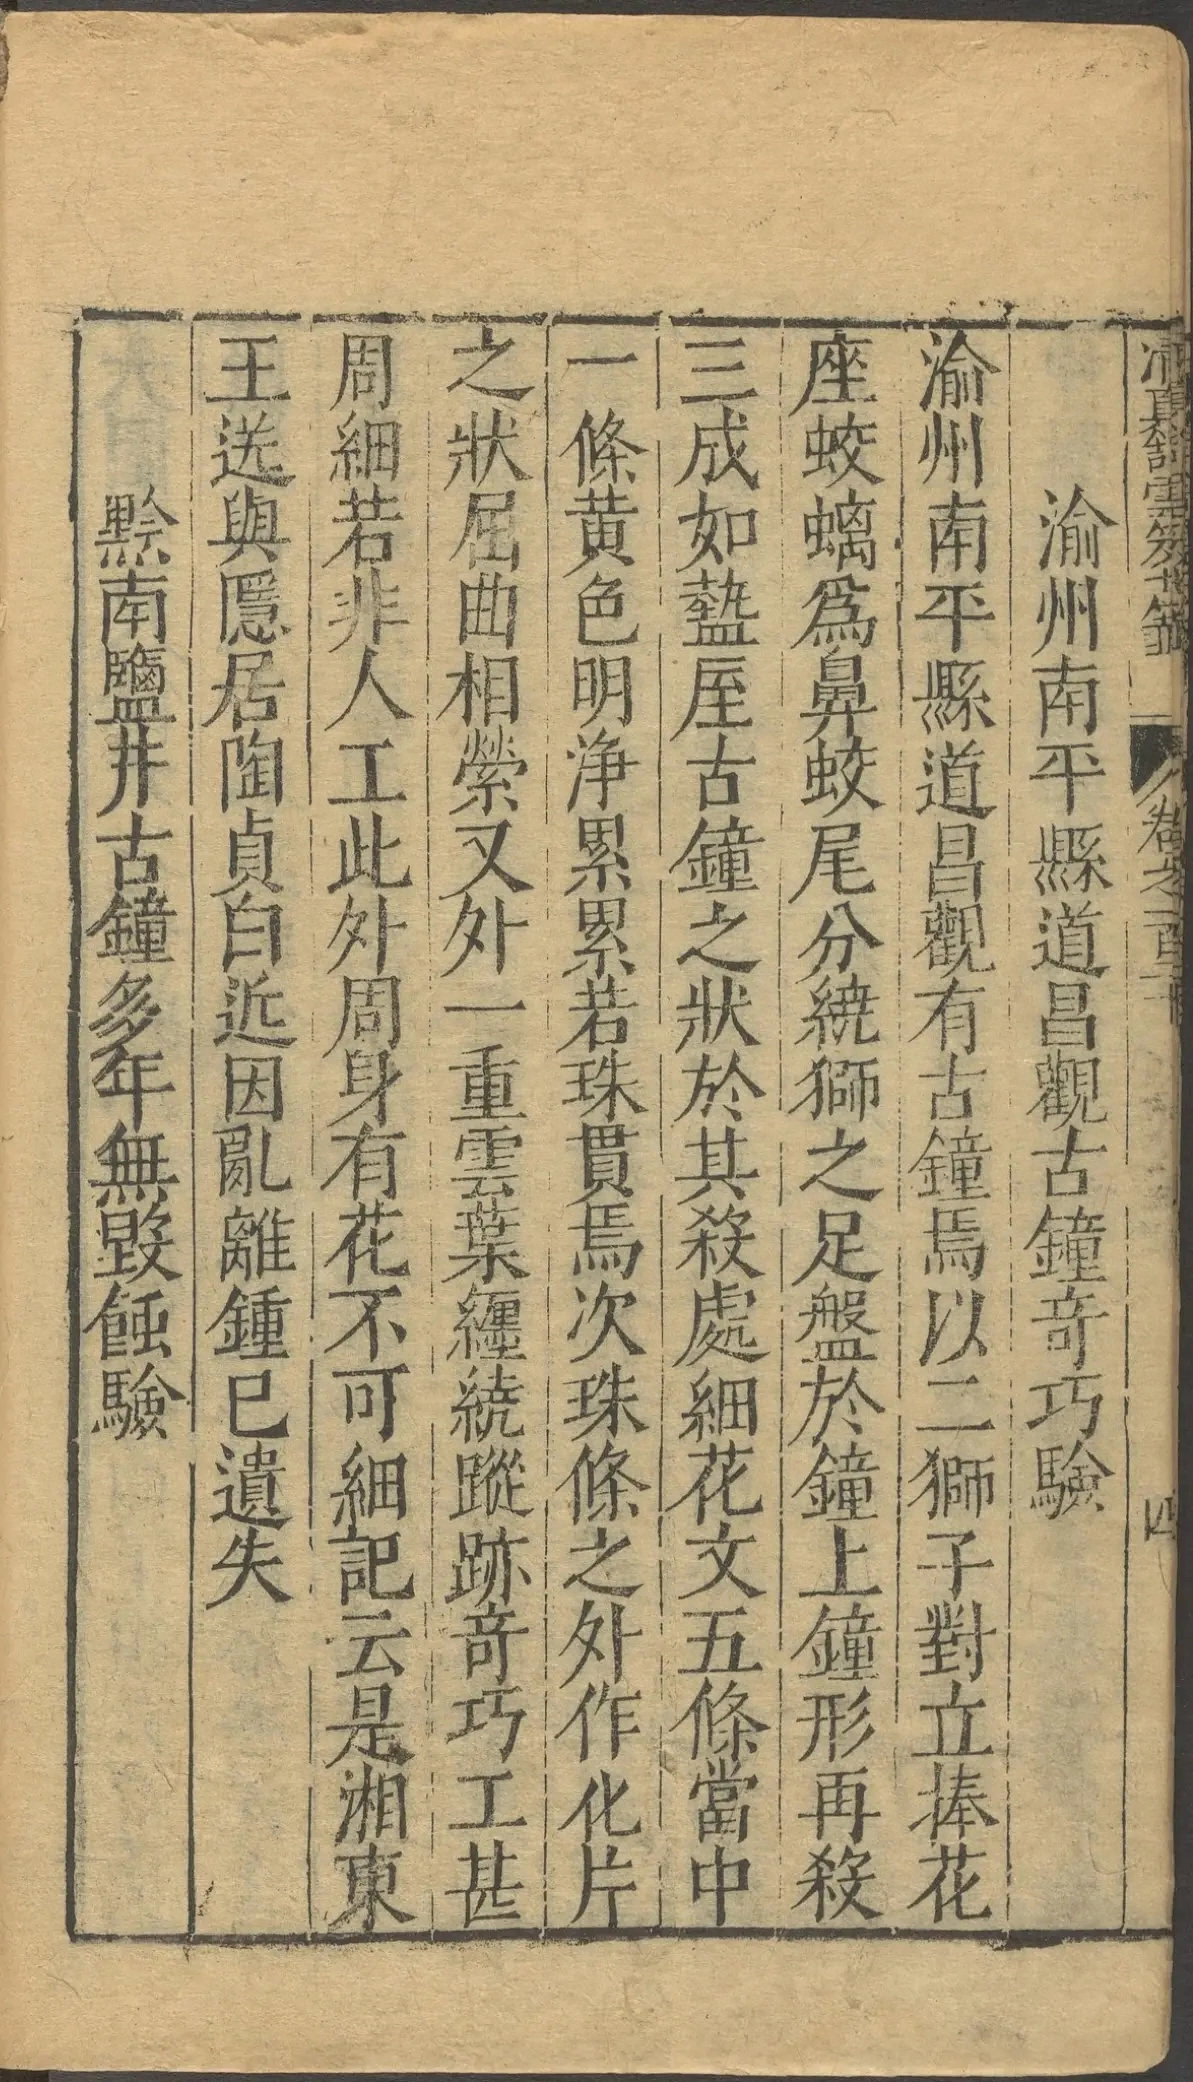 渝州南平縣道昌觀古鐘竒巧驗
渝州南平縣道昌觀有古鐘焉以二獅子對立捧花
座蛟螭爲鼻蛟尾分繞獅之足盤於鐘上鐘形再殺
三成如盩厔古鐘之狀於其殺處細花文五條當中
一條黄色明浄累累若珠貫焉次珠條之外作化片
之狀屈曲相縈又外一重雲葉纒繞蹤跡竒巧工甚
周細若非人工此外周身有花不可細記云是湘東
王送與隱居陶貞白近因亂離鍾已遺失
黔南鹽井古鐘多年無毀蝕驗